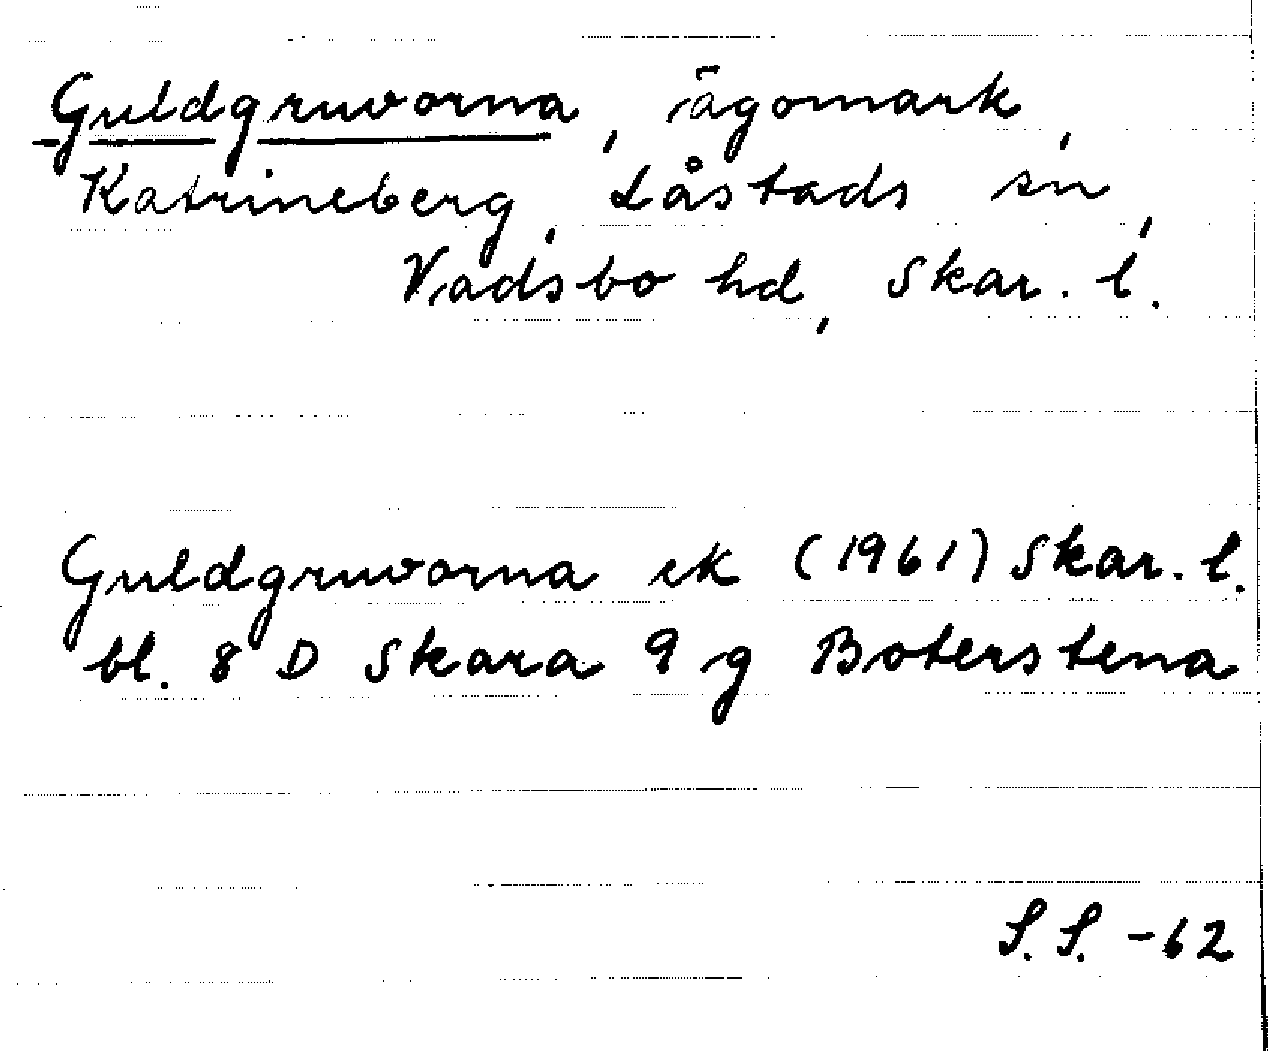 Guldgruvorna, ägomark,
Katrineberg, Låstads sn,
Vadsbo hd, Skar. l.
Guldgruvorna ek (1961) Skar. l.
bl. 8 D Skara 9 g Boterstena
S.S. -62